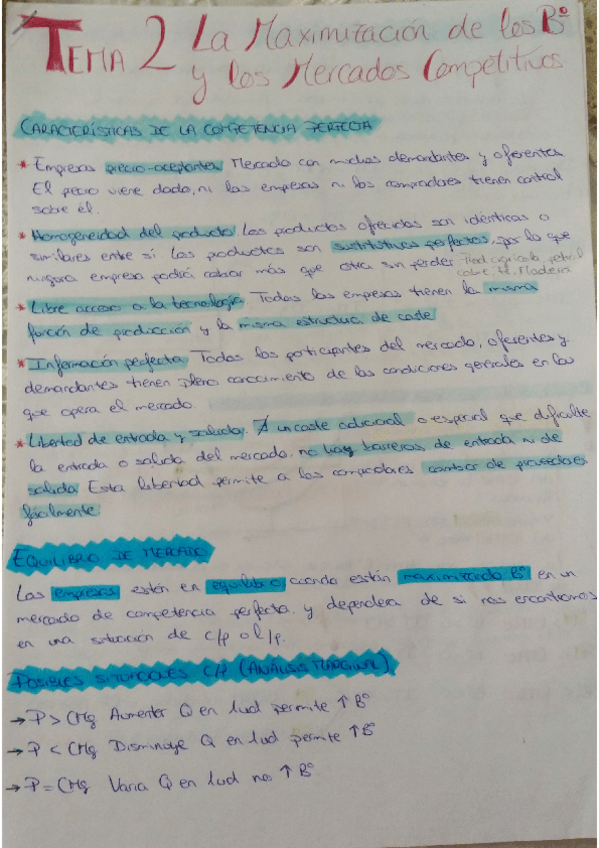 TEMA 2 La Maximización de los Bº
y los Mercados Competitivos
CARACTERÍSTICAS DE LA COMPETENCIA PERFECTA
* Empresas precio-aceptantes Mercado con muchos demandantes y oferentes
El precio viene dado, ni las empresas ni los compradores tienen control
sobre él.
* Homogeneidad del producto Los productos ofrecidos son idénticos o
similares entre sí Los productos son sustitutivos perfectos, por lo que
ninguna empresa podrá cobrar más que otra sin perder Prod. agrícola, petról
cobre, Madera
* Libre acceso a la tecnología Todas las empresas tienen la misma
función de producción y la misma estructura de coste
* Información perfecta Todos los participantes del mercado, oferentes y
demandantes tienen pleno conocimiento de las condiciones generales en las
que opera el mercado.
* Libertad de entrada y salida. ∄ un coste adicional o especial que dificulte
la entrada o salida del mercado, no hay barreras de entrada ni de
salida Esta libertad permite a los compradores cambiar de proveedores
fácilmente
EQUILIBRIO DE MERCADO
Las empresas están en equilibrio cuando están maximizando Bº en un
mercado de competencia perfecta. y dependerá de si nos encontramos
en una situación de c/p o l/p.
POSIBLES SITUACIONES C/P (ANÁLISIS MARGINAL)
→ P > CMg Aumentar Q en 1ud permite ↑ Bº
→ P < CMg Disminuye Q en 1ud permite ↑ Bº
→ P = CMg Varia Q en 1ud no ↑ Bº